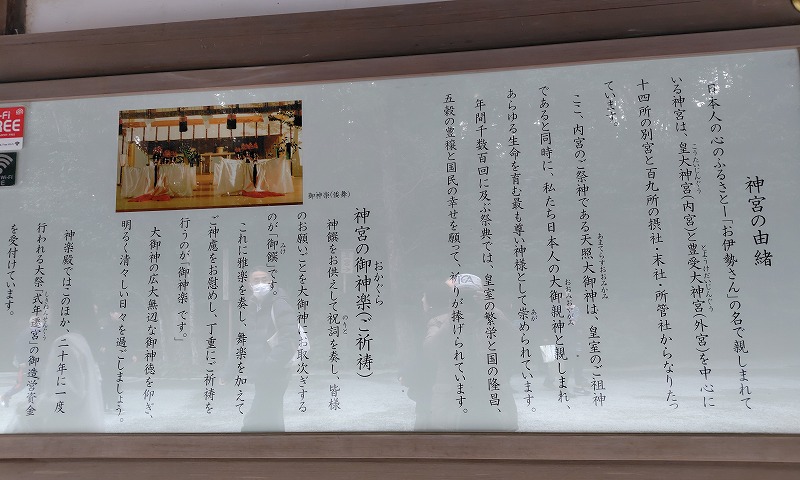 神宮の由緒
日本人の心のふるさと―「お伊勢さん」の名で親しまれて
いる神宮は、皇大神宮(内宮)と豊受大神宮(外宮)を中心に
こうたいじんぐう
とようけだいじんぐう
十四所の別宮と百九所の摂社・末社・所管社からなりたっ
ています。
ここ、内宮のご祭神である天照大御神は、皇室のご祖神
あまてらすおおみかみ
であると同時に、私たち日本人の大御親神と親しまれ、
おおみおやがみ
あらゆる生命を育む最も尊い神様として崇められています。
あが
年間千数百回に及ぶ祭典では、皇室の繁栄と国の隆昌、
五穀の豊穣と国民の幸せを願って、祈りが捧げられています。
御神楽(倭舞)
神宮の御神楽(ご祈祷)
おかぐら
神饌をお供えして祝詞を奏し、皆様
のりと
のお願いごとを大御神にお取次ぎする
のが「御饌」です。
みけ
これに雅楽を奏し、舞楽を加えて
ご神慮をお慰めし、丁重にご祈祷を
行うのが「御神楽」です。
大御神の広大無辺な御神徳を仰ぎ、
明るく清々しい日々を過ごしましょう。
神楽殿ではこのほか、二十年に一度
行われる大祭「式年遷宮」の御造営資金
しきねんせんぐう
を受付けています。
-Fi
FREE